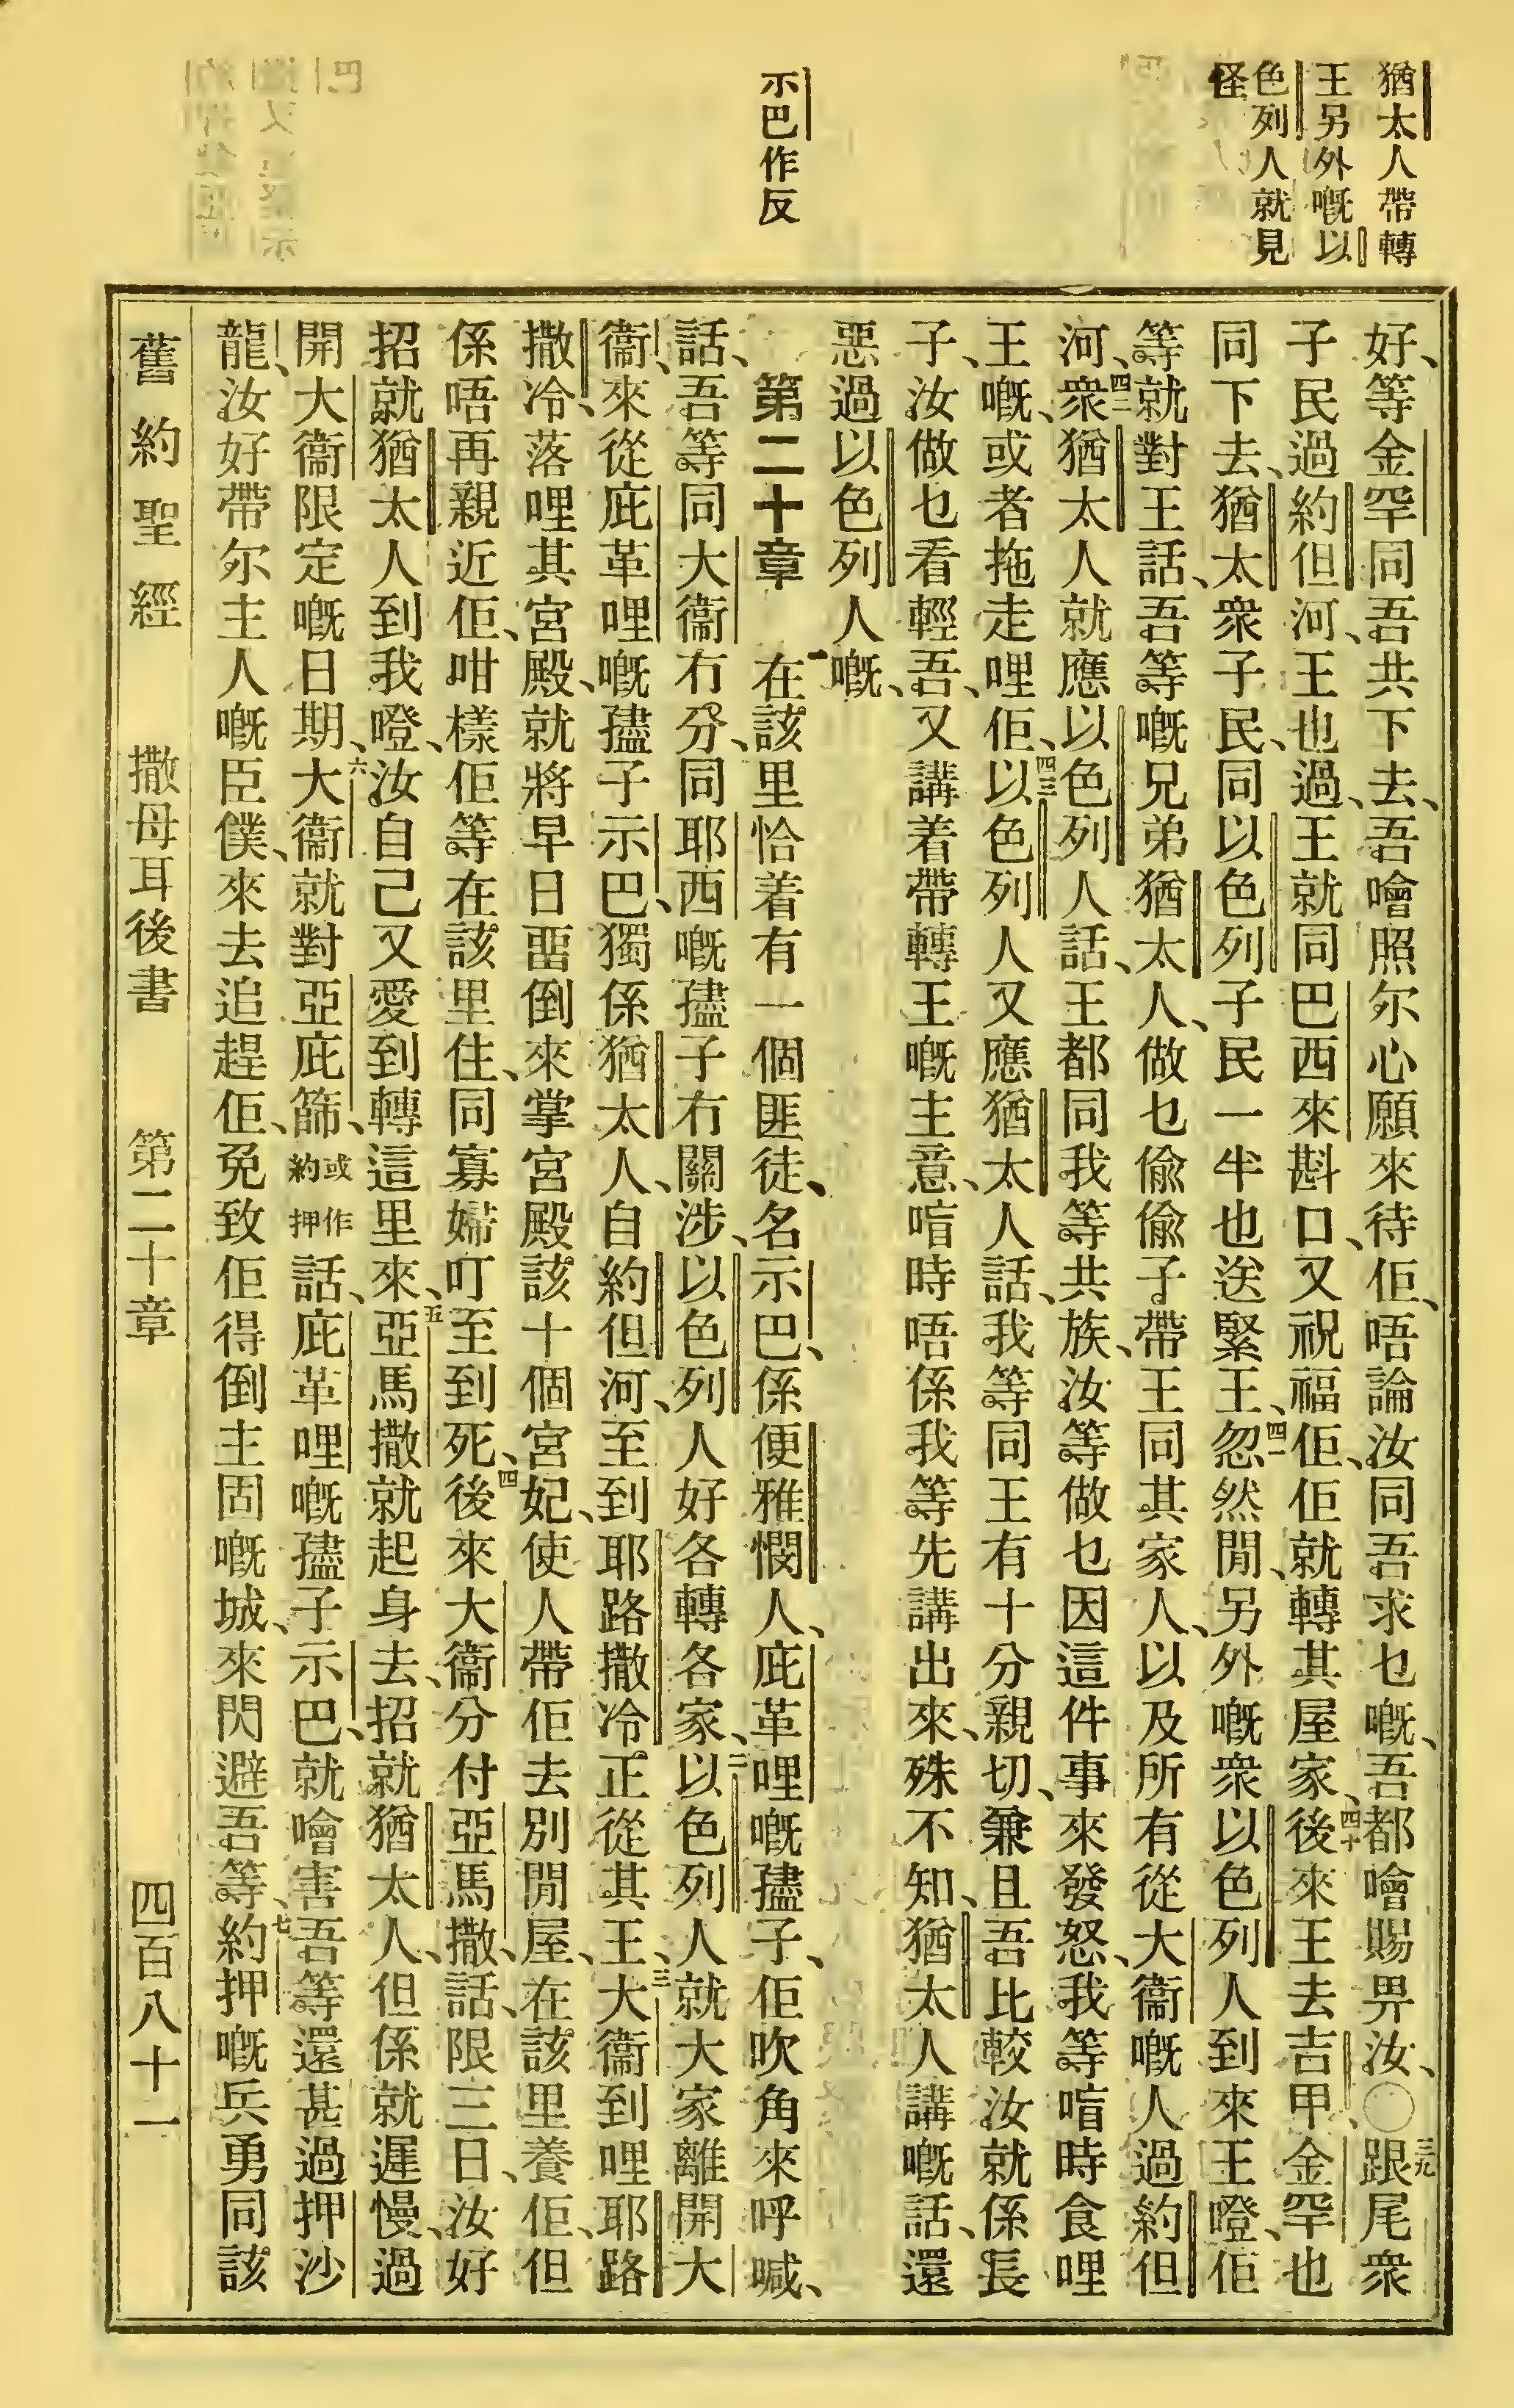 猶太人帶轉
王另外嘅以
色列人就見
怪
示巴作反
好、等金罕同吾共下去、吾噲照尔心願來待佢、唔論汝同吾求乜嘅、吾都噲賜畀汝、○三九跟尾衆
子民過約但河、王也過、王就同巴西來斟口、又祝福佢、佢就轉其屋家、四十後來王去吉甲、金罕也
同下去、猶太衆子民、同以色列子民一半也送緊王、四一忽然間、另外嘅衆以色列人到來王嶝、佢
等就對王話、吾等嘅兄弟猶太人、做乜偷偷子帶王同其家人、以及所有從大衞嘅人過約但
河、四二衆猶太人就應以色列人話、王都同我等共族、汝等做乜因這件事來發怒、我等嗋時食哩
王嘅、或者拖走哩佢、四三以色列人又應猶太人話、我等同王有十分親切、兼且吾比較汝就係長
子、汝做乜看輕吾、又講着帶轉王嘅主意、嗋時唔係我等先講出來、殊不知、猶太人講嘅話、還
惡過以色列人嘅、
第二十章　一在該里恰着有一個匪徒、名示巴、係便雅憫人、庇革哩嘅孻子、佢吹角來呼喊、
話、吾等同大衞冇分、同耶西嘅孻子冇關涉、以色列人好各轉各家、二以色列人就大家離開大
衞、來從庇革哩嘅孻子示巴、獨係猶太人、自約但河、至到耶路撒冷、正從其王、三大衞到哩耶路
撒冷、落哩其宮殿、就將早日畱倒來掌宮殿該十個宮妃、使人帶佢去別間屋、在該里養佢、但
係唔再親近佢、咁樣佢等在該里住、同寡婦叮至到死、四後來大衞分付亞馬撒、話、限三日、汝好
招就猶太人到我嶝、汝自己又愛到轉這里來、五亞馬撒就起身去、招就猶太人、但係就遲慢、過
開大衞限定嘅日期、六大衞就對亞庇篩、或作約押話、庇革哩嘅孻子示巴、就噲害吾等、還甚過押沙
龍、汝好帶尔主人嘅臣僕、來去追趕佢、免致佢得倒主固嘅城、來閃避吾等、七約押嘅兵勇同該
舊約聖經　撒母耳後書　第二十章　四百八十一